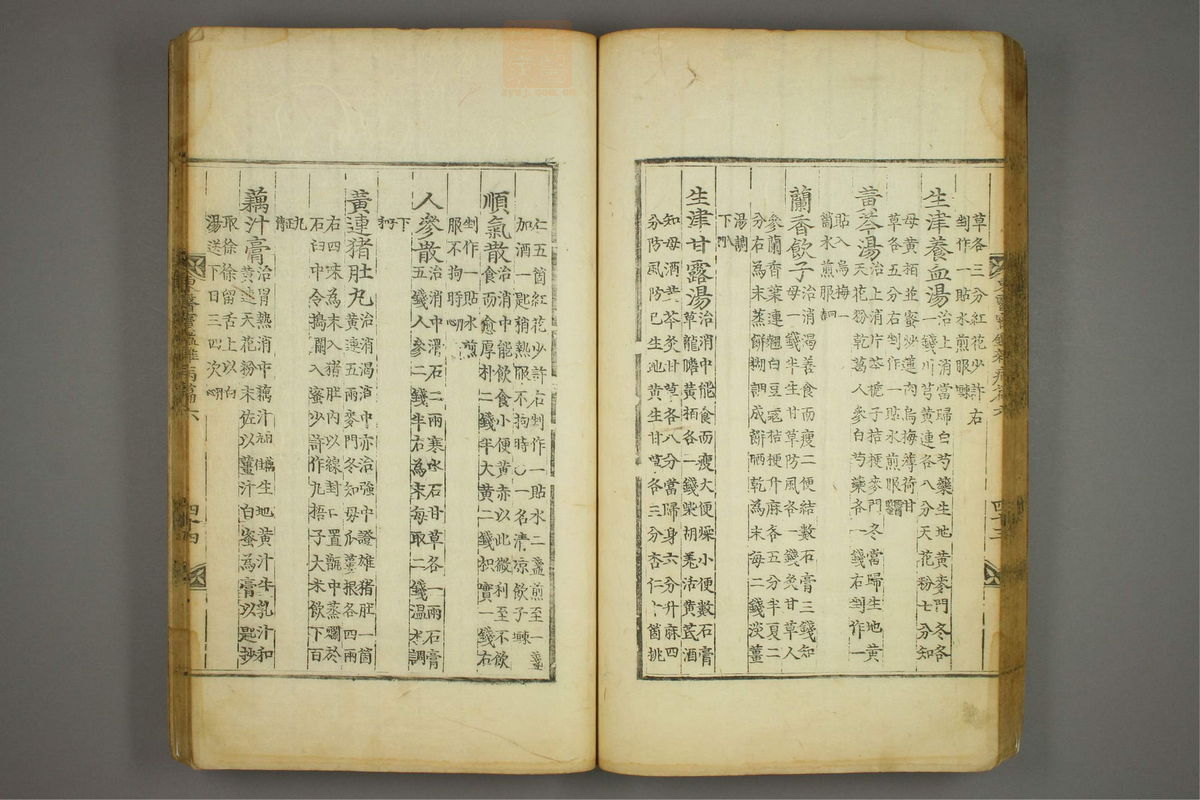 草各三分紅花少許右
剉作一貼水煎服
生津養血湯
治上消當歸白芍藥生地黃麥門冬各
一錢川芎黃連各八分天花粉七分知
母黃栢並蜜炒蓮肉烏梅薄荷甘
草各五分右剉作一貼水煎服
黃芩湯
治上消片芩梔子桔梗麥門冬當歸生地黃
天花粉乾葛人參白芍藥各一錢右剉作一
貼入烏梅一
箇水煎服
蘭香飮子
治消渴善食而瘦二便結數石膏三錢知
母一錢半生甘草防風各一錢灸甘草人
參蘭香葉連翹白豆蔲桔梗升麻各五分半夏二
分右為末蒸餠糊調成餠晒乾為末每二錢淡薑
湯調
下
生津甘露湯
治消中能食而瘦大便燥小便數石膏
草龍膽黃栢各一錢柴胡羌活黃芪酒
知母酒黃芩灸甘草各八分當歸身六分升麻四
分防風防己生地黃生甘草各三分杏仁十箇桃
四十三
仁五箇紅花少許右剉作一貼水二盞煎至一盞
加酒一匙稍熱服不拘時○一名清凉飮子
順氣散
治消中能飮食小便黃赤以此微利至不欲
食而愈厚朴二錢半大黃二錢枳實一錢右
剉作一貼水煎
服不拘時
人參散
治消中滑石二兩寒水石甘草各一兩石膏
五錢人參二錢半右為末每取二錢溫水調
下
黃連猪肚丸
治消渴消中亦治強中證雄猪肚一箇
黃連五兩麥門冬知母瓜蔞根各四兩
右四味為末入猪肚內以線封口置甑中蒸爛於
石臼中令搗爛入蜜少許作丸梧子大米飮下百
丸
藕汁膏
治胃熱消中藕汁生地黃汁牛乳汁和
黃連天花粉末佐以薑汁白蜜為膏以匙抄
取徐徐留舌上以白
湯送下日三四次
東醫寶鑑雜病篇六
四十四